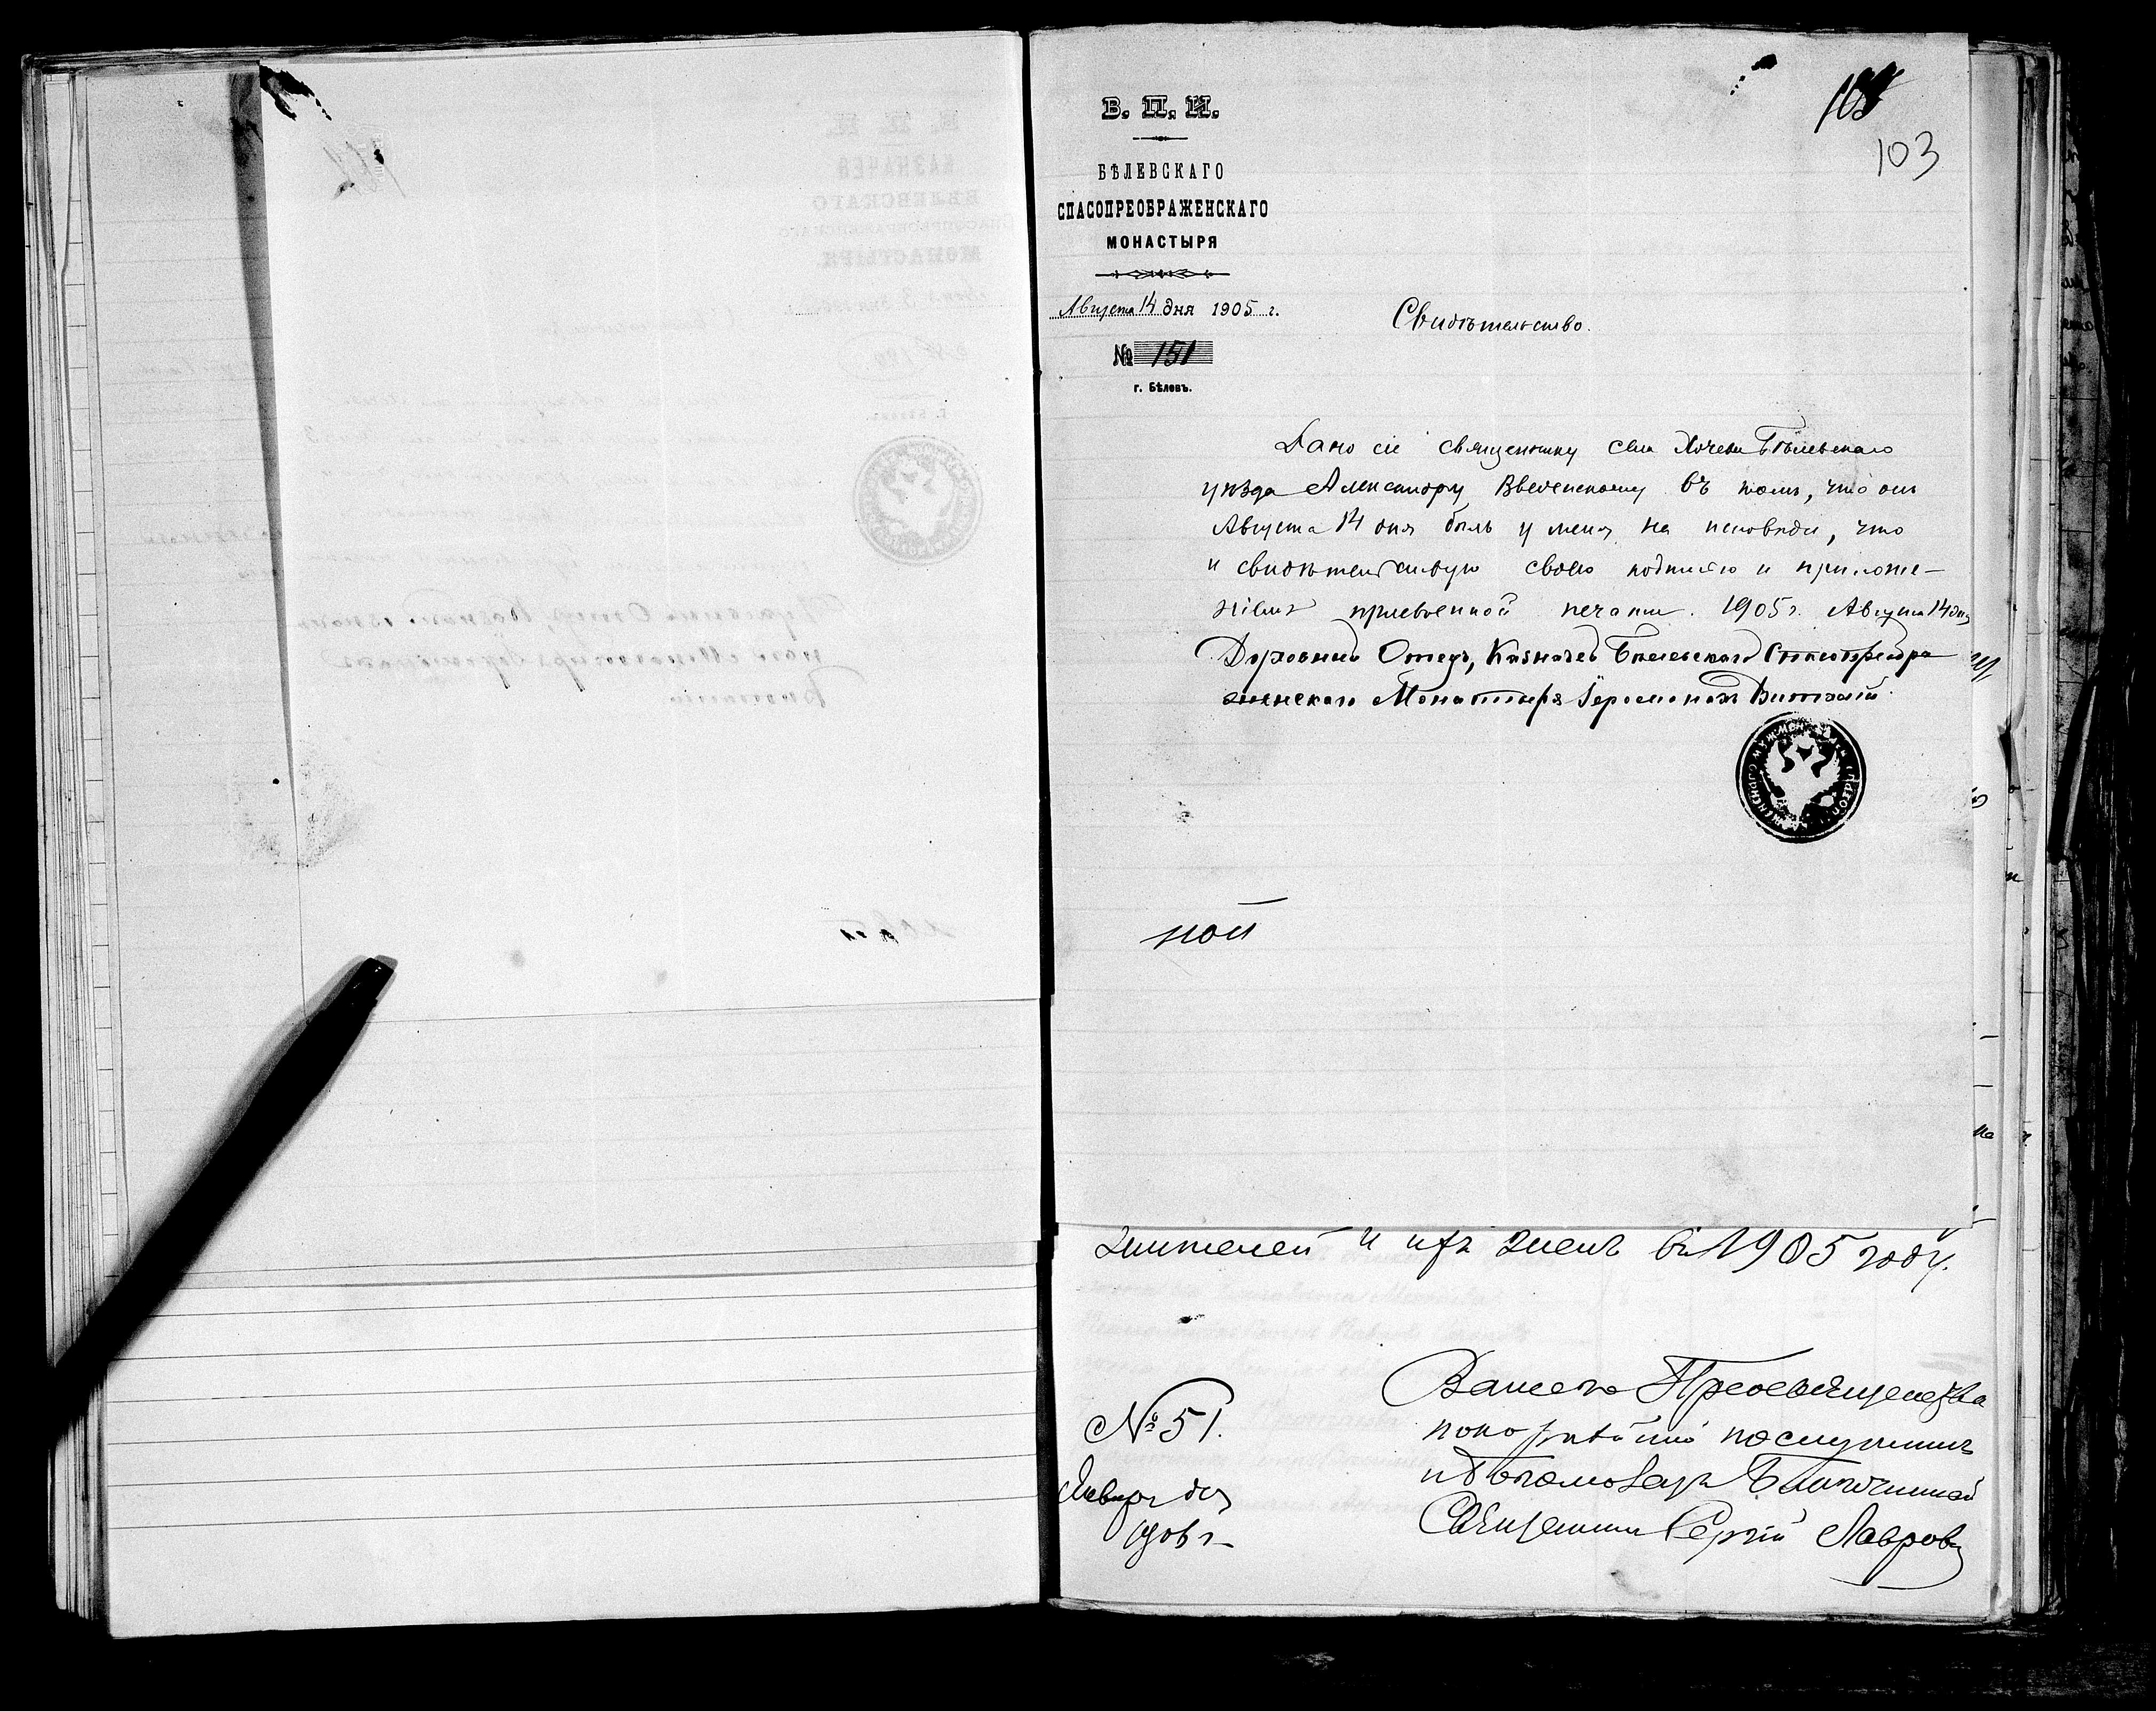 103
В. П. И.
БѢЛЕВСКАГО
СПАСОПРЕОБРАЖЕНСКАГО
МОНАСТЫРЯ
Августа 14 дня 1905 г.
№ 151
г. Бѣлевъ.
Свидѣтельство.
Дано сіе священнику села Бѣлевскаго
уѣзда Александру Введенскому въ томъ, что онъ
Августа 14 дня былъ у меня на исповѣди, что
и свидѣтельствую своею подписью и приложе-
ніемъ печати. 1905 г. Августа 14 дня
Духовный Отецъ, Казначей Бѣлевскаго Спасопреобра
женскаго Монастыря Іеромонахъ Виталій.
ной
жителей и ихъ женъ въ 1905 году.
Вашего Преосвященства
покорнѣйшій послушникъ
и Богомолецъ Благочинный
Священникъ Сергій Лавровъ
№ 51.
Январь
1906 г.